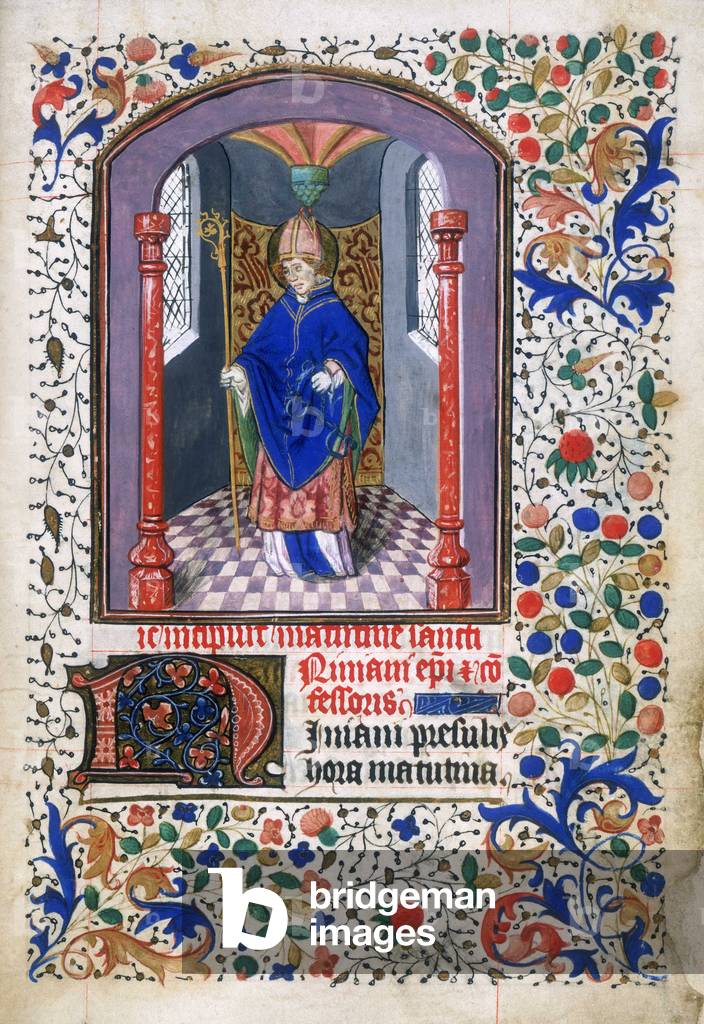 ic incipiunt matutine sancti
Niniani epi & co
fessoris
Niniani presulis
hora matutina
bridgeman
images